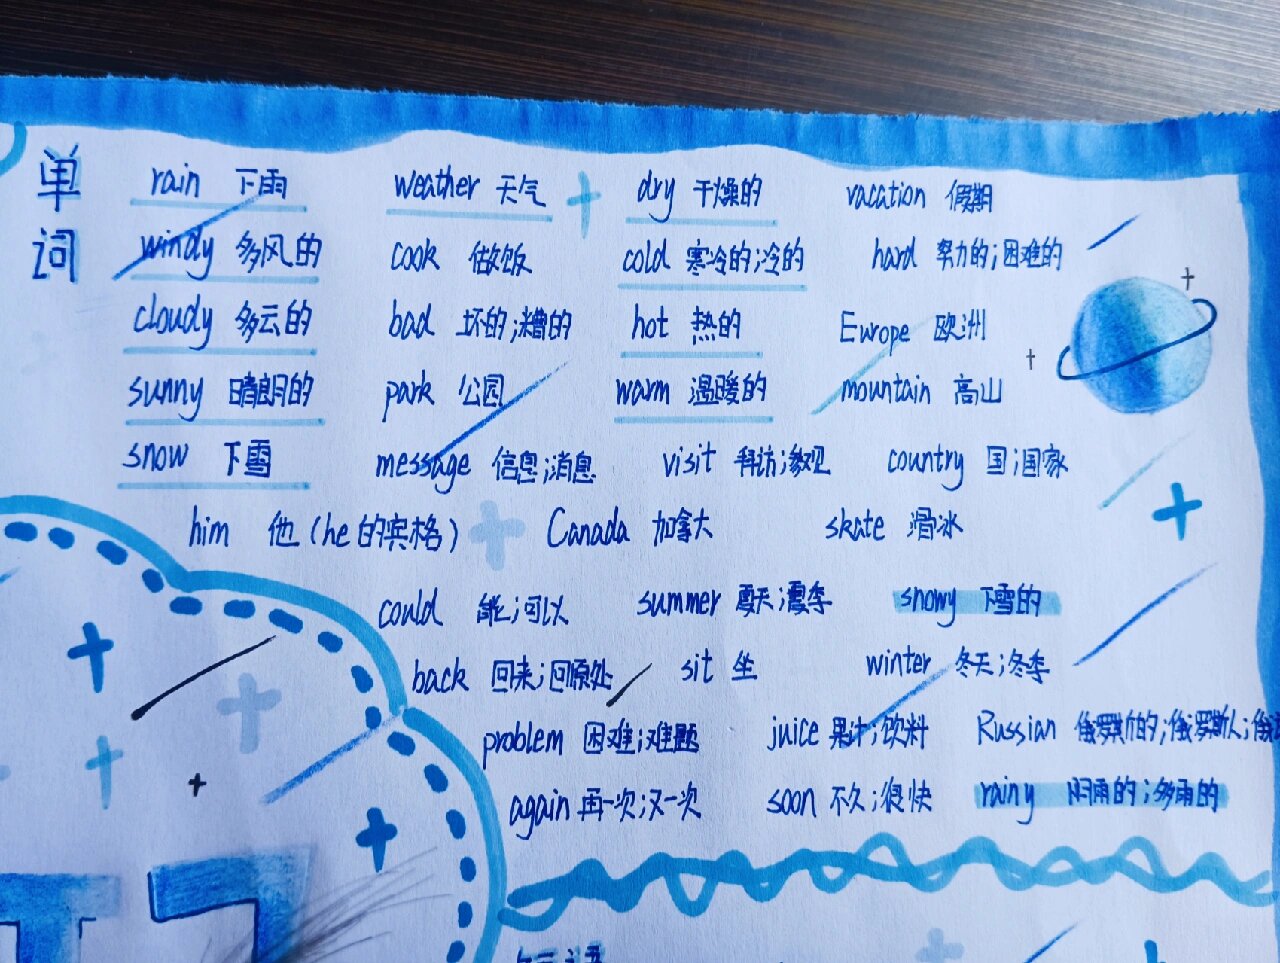 单词
rain 下雨 weather 天气 dry 干燥的 vacation 假期
windy 多风的 cook 做饭 cold 寒冷的;冷的 hard 努力的;困难的
cloudy 多云的 bad 坏的;糟的 hot 热的 Europe 欧洲
sunny 晴朗的 park 公园 warm 温暖的 mountain 高山
snow 下雪 message 信息;消息 visit 拜访;参观 country 国;国家
him 他(he的宾格) Canada 加拿大 skate 滑冰
could 能;可以 summer 夏天;夏季 snowy 下雪的
back 回来;回原处 sit 坐 winter 冬天;冬季
problem 困难;难题 juice 果汁;饮料 Russian 俄罗斯的;俄罗斯人;俄
again 再一次;又一次 soon 不久;很快 rainy 阴雨的;多雨的